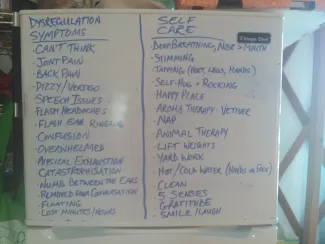 DYSREGULATION
SYMPTOMS
· CAN'T THINK
· JOINT PAIN
· BACK PAIN
· DIZZY/VERTIGO
· SPEECH ISSUES
· FLASH HEADACHES
· FLASH EAR RINGING
· CONFUSION
· OVERWHELMED
· PHYSICAL EXHAUSTION
· CATASTROPHISATION
· NUMB BETWEEN THE EARS
· REMOVED FROM CONVERSATION
· FLOATING
· LOST MINUTES/HOURS
SELF
CARE
· DEEP BREATHING, NOSE > MOUTH
· STIMMING
· TAPPING (FEET, LEGS, HANDS)
· SELF-HUG + ROCKING
· HAPPY PLACE
· AROMA THERAPY: VETIVER
· NAP
· ANIMAL THERAPY
· LIFT WEIGHTS
· YARD WORK
· HOT/COLD WATER (HANDS or FACE)
· CLEAN
· 5 SENSES
· GRATITUDE
· SMILE/LAUGH